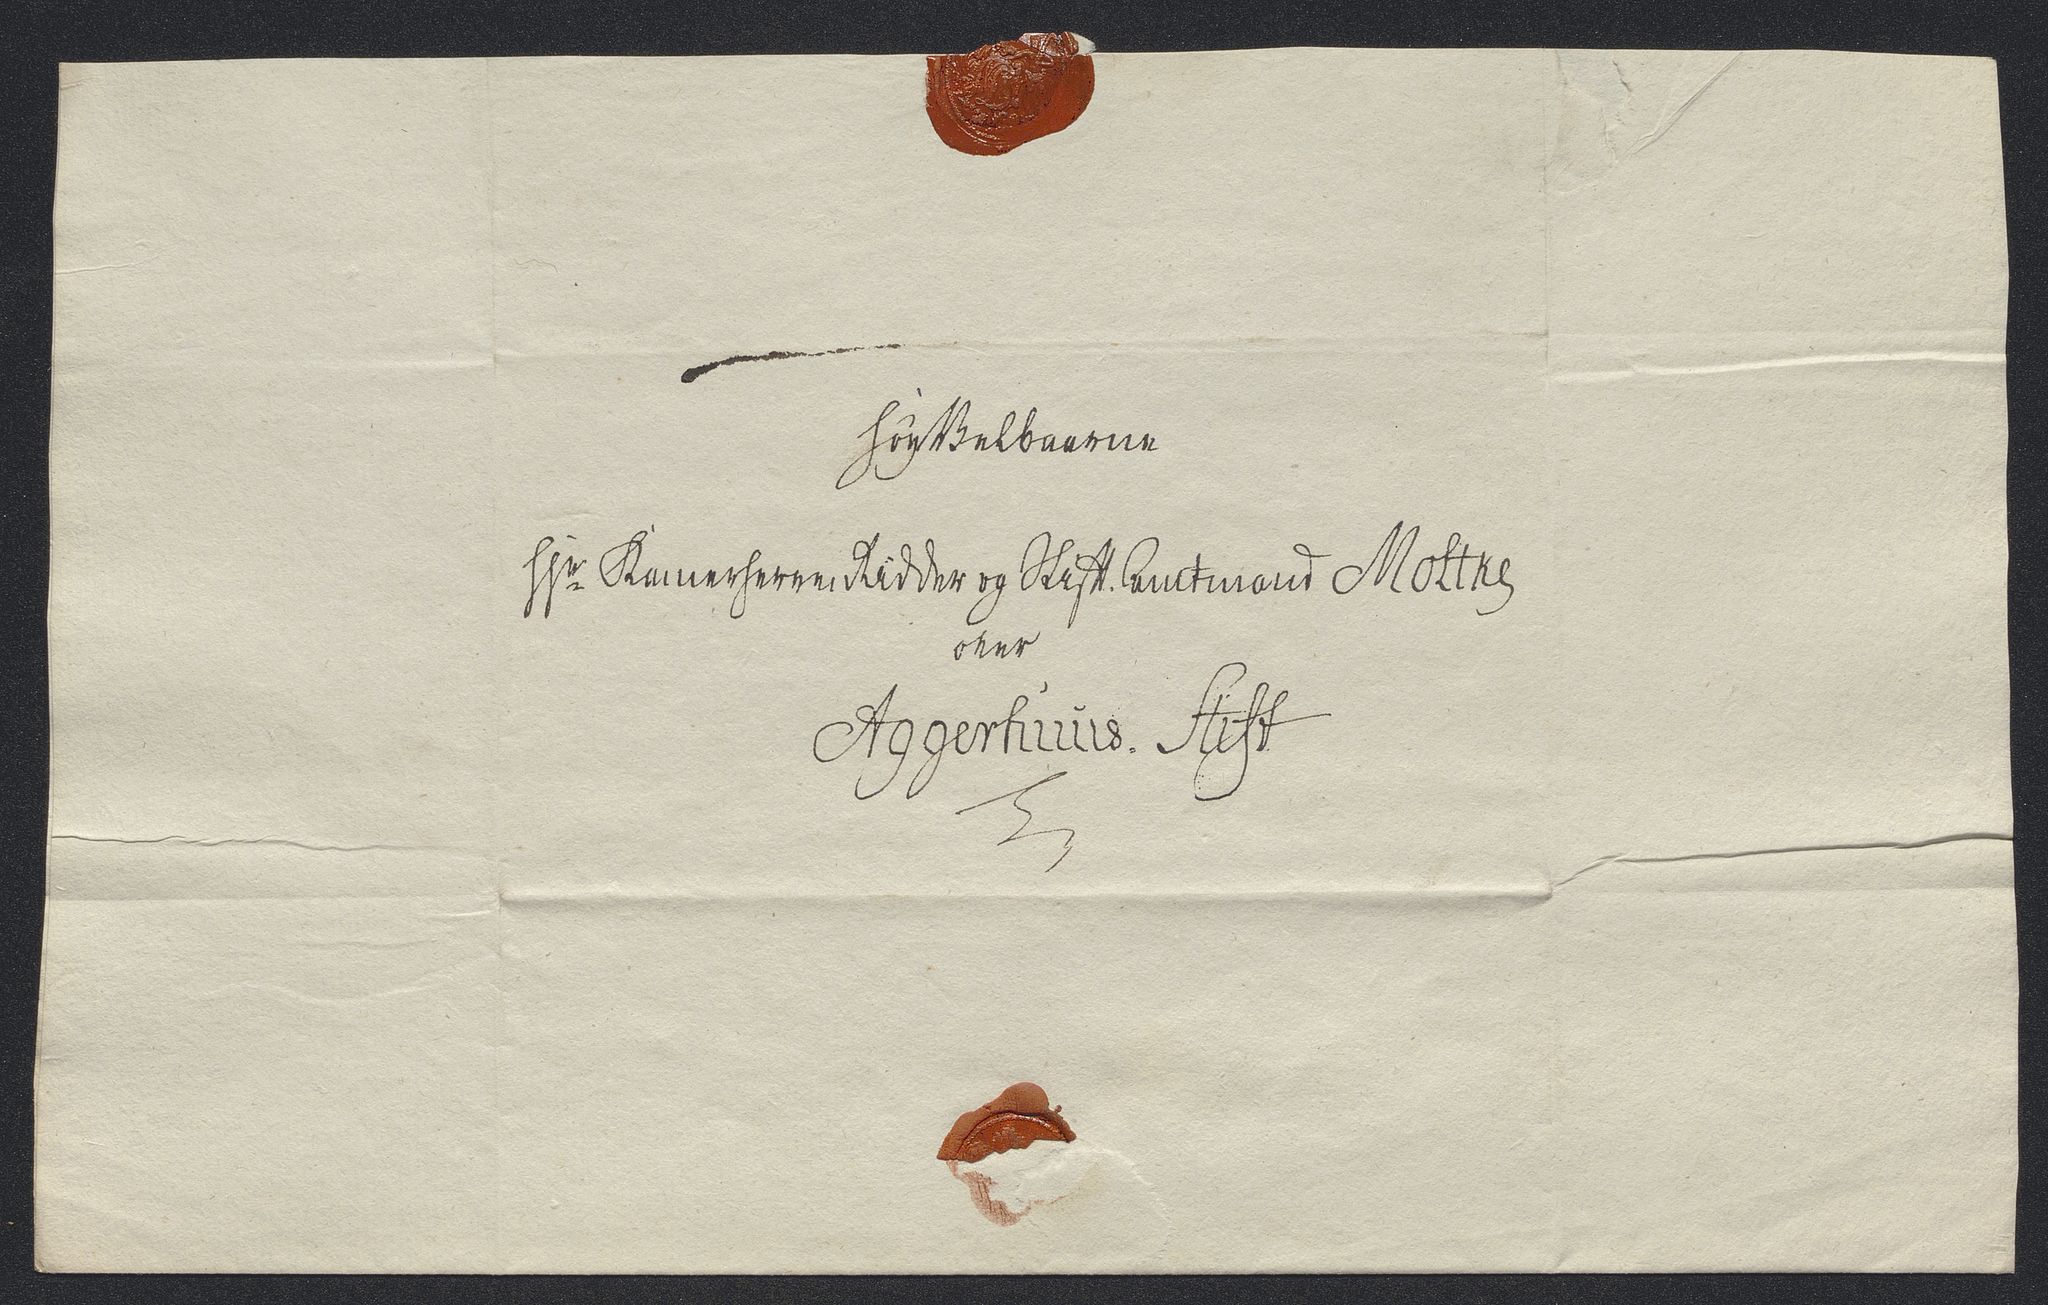 HöyVelbaarne
Hr. Kamerherre, Ridder og Stift Amtmand Moltke
over
Aggerhuus. Stift